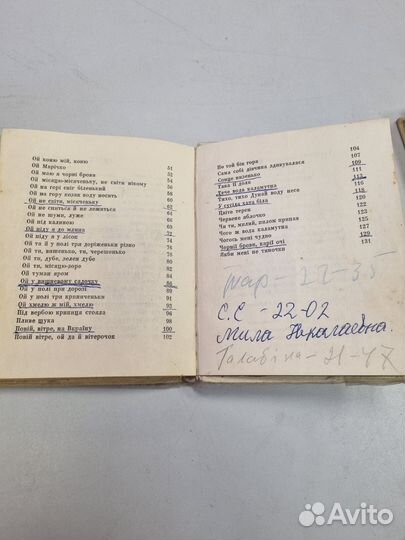 Ой коню мій, коню
Ой Марічко 51
Ой маю я чорні брови 53
Ой місяцю-місяченьку, не світи нікому 54
Ой на горі сніг біленький 56
Ой на гору козак воду носить
Ой не світи, місяченьку 60
Ой не спиться й не лежиться
Ой не шуми, луже
Ой під калиною
Ой піду я до млина
Ой піду я у лісок
Ой та й у полі три доріженьки різно
Ой ти, вишенько, ти, черешенько
Ой ти, дубе, зелен дубе
Ой ти, місяцю-зоро
Ой туман яром
Ой у вишневому садочку 86
Ой у полі при дорозі
Ой у полі три криниченьки
Ой хмелю ж мій, хмелю
Під вербою криниця стояла
Пливе щука 98
Повій, вітре, на Вкраїну 100
Повій, вітре, ой да й вітерочок 102
По той бік гора 104
Сама собі дівчина здивувалася 107
Сонце низенько 109
Така її доля 111
Тече вода каламутна 113
Тихо, тихо Дунай воду несе 116
У сусіда хата біла 118
Цвіте терен 120
Червоне яблочко 122
Чи ти, милий, пилом припав 123
Чого ж вода каламутна 125
Чогось мені чудно 127
Чорнії брови, карії очі 129
Якби мені не тиночки 131
22-35
С.С - 22-02
Мила Николаевна.
21-47
Avito